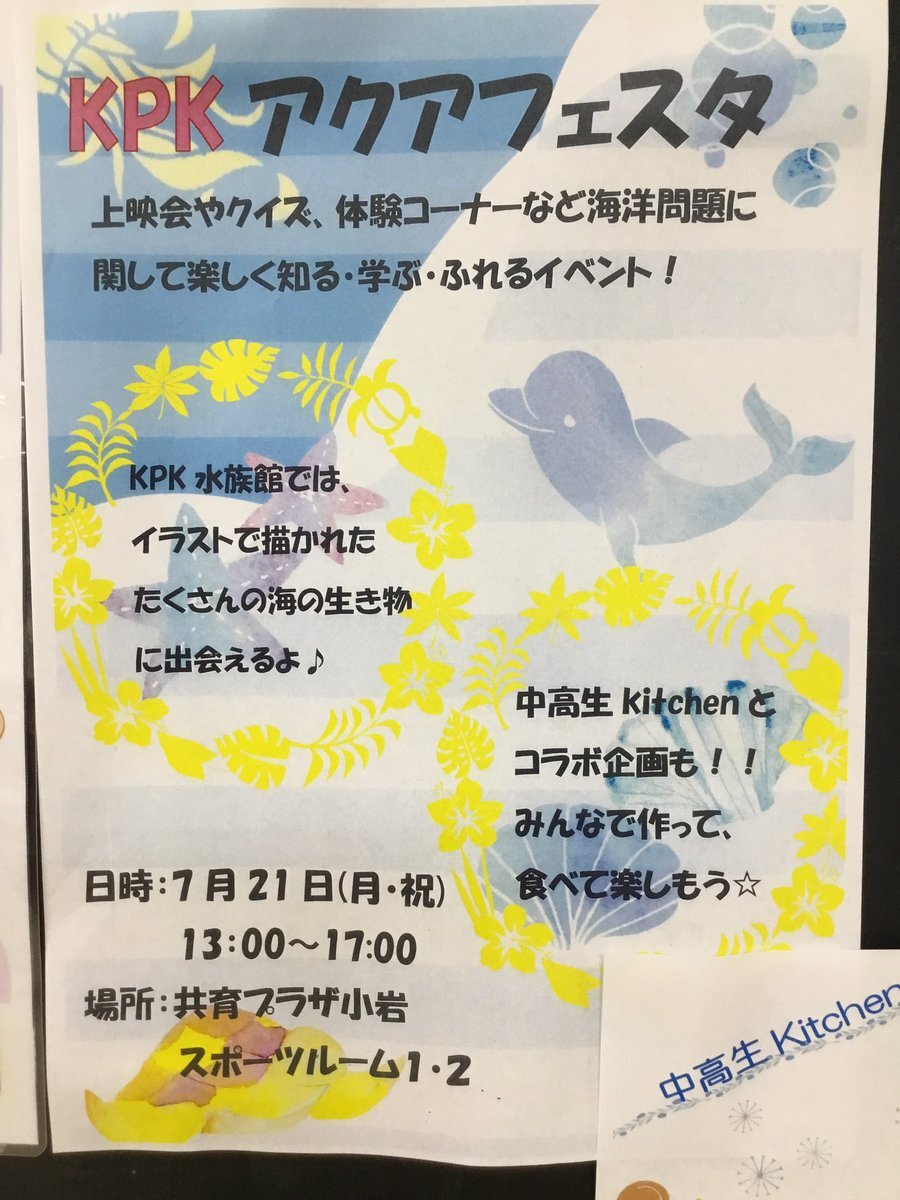 KPK アクアフェスタ
上映会やクイズ、体験コーナーなど海洋問題に
関して楽しく知る・学ぶ・ふれるイベント！
KPK 水族館では、
イラストで描かれた
たくさんの海の生き物
に出会えるよ♪
中高生 Kitchen と
コラボ企画も！！
みんなで作って、
食べて楽しもう☆
日時：7 月 21 日(月・祝)
13：00～17:00
場所：共育プラザ小岩
スポーツルーム1・2
中高生 Kitchen